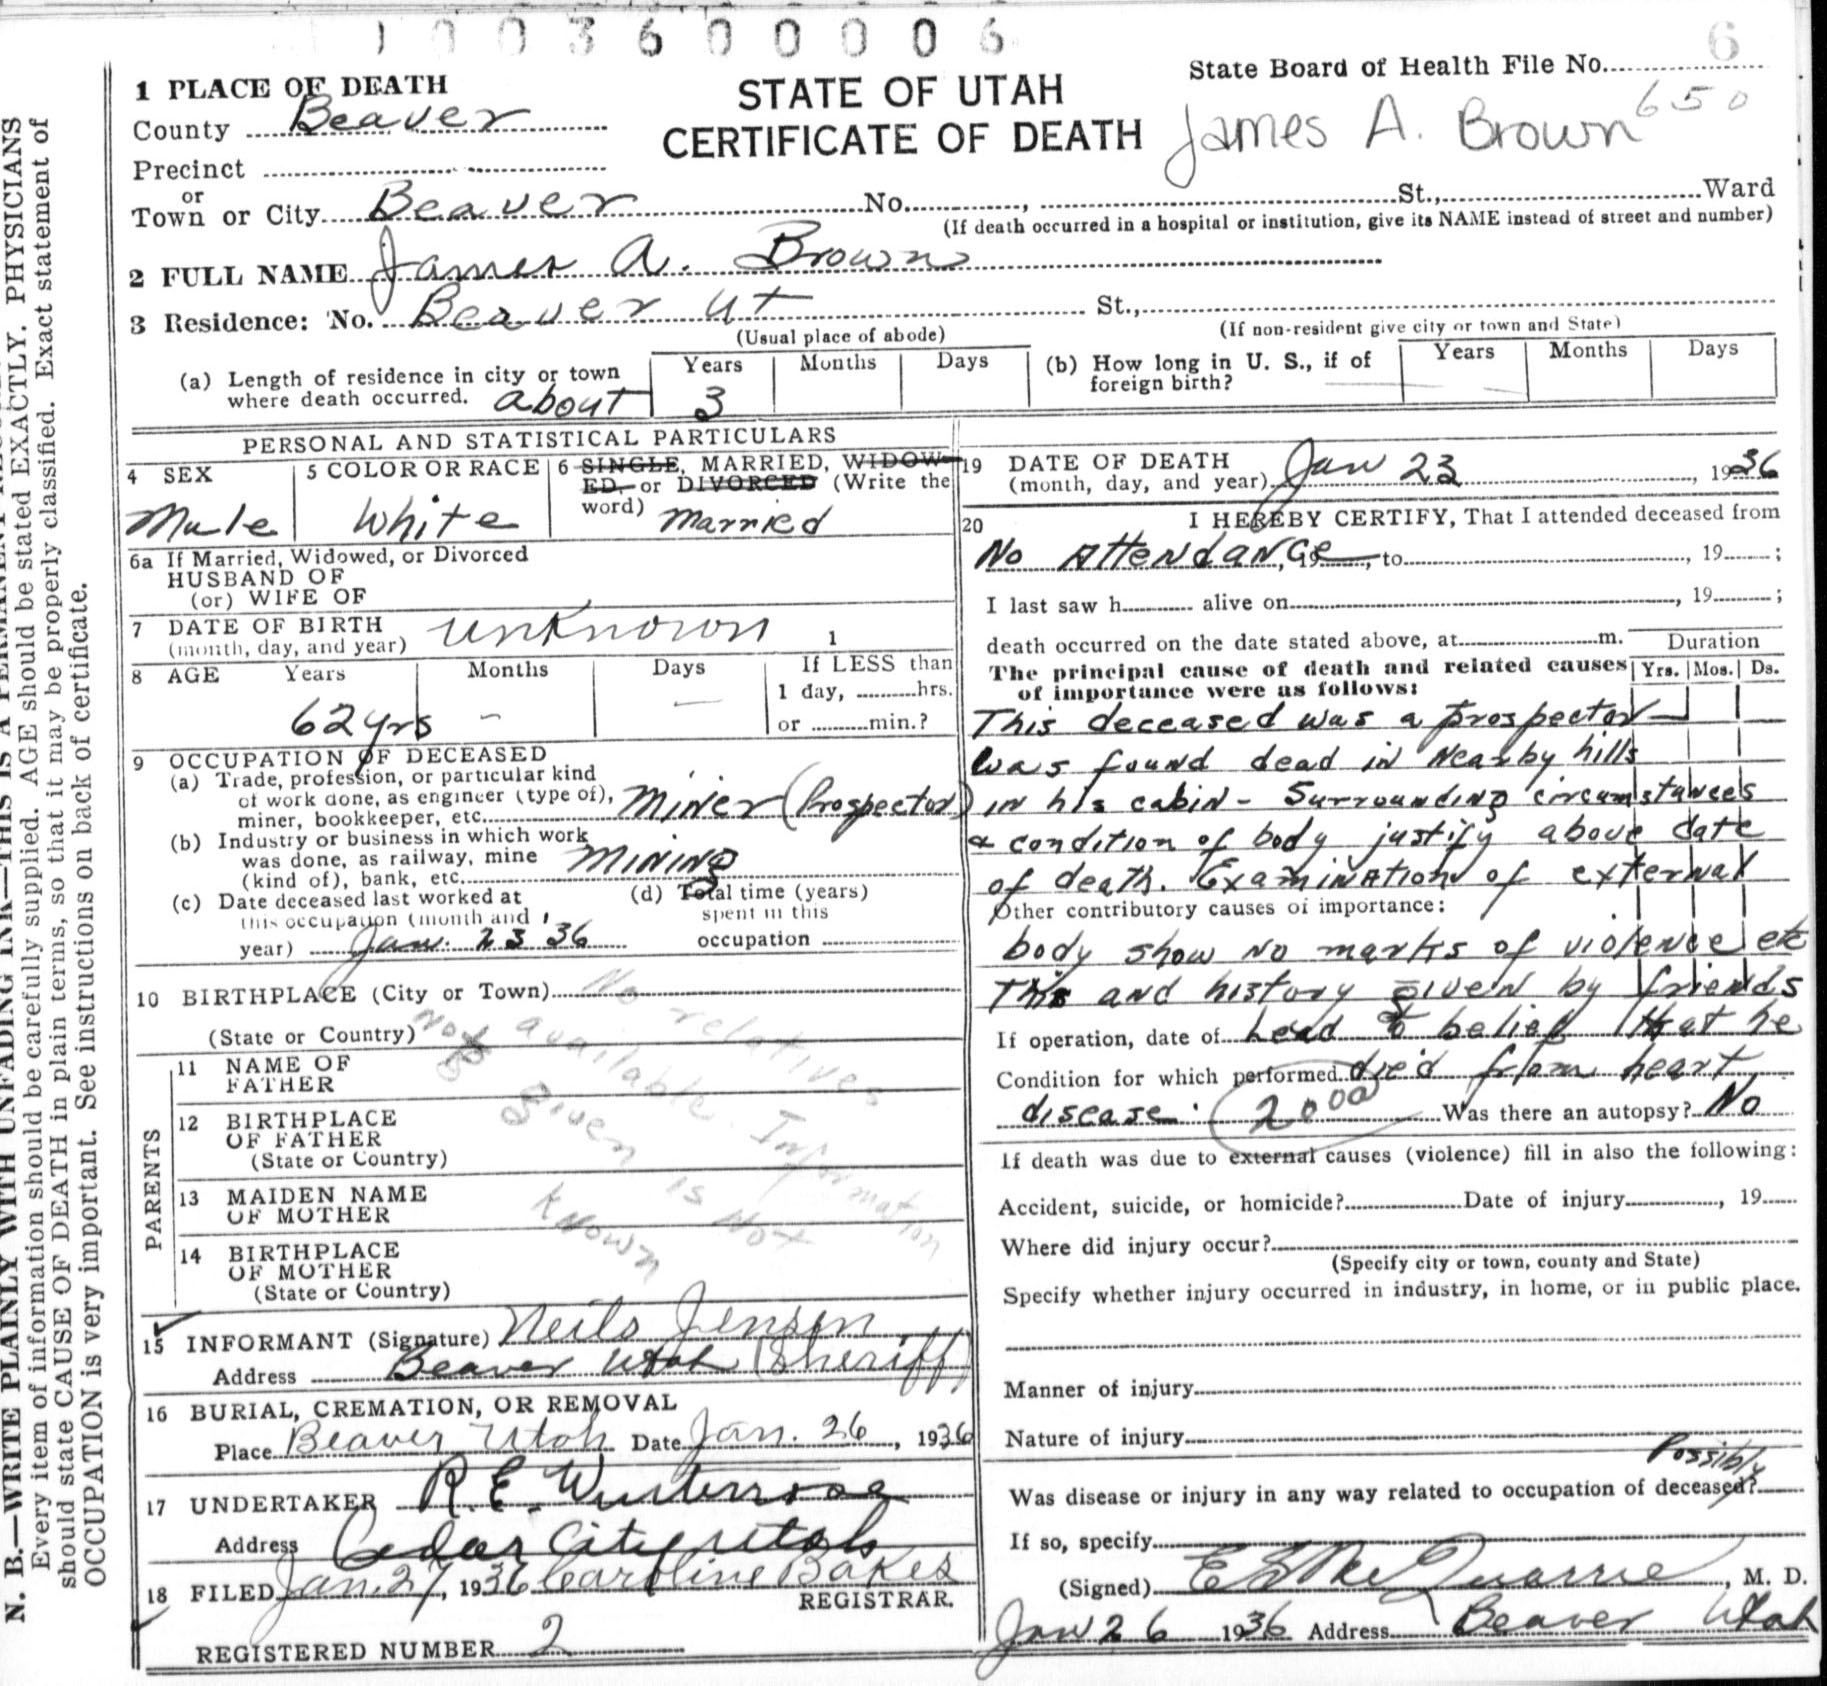 1003600006
6
State Board of Health File No.
650
1 PLACE OF DEATH
STATE OF UTAH
CERTIFICATE OF DEATH
James A. Brown
County Beaver
Precinct
or
Town or City Beaver No. , St., Ward
(If death occurred in a hospital or institution, give its NAME instead of street and number)
2 FULL NAME James A. Brown
3 Residence: No. Beaver Ut St.,
(Usual place of abode) (If non-resident give city or town and State)
(a) Length of residence in city or town where death occurred. about Years 3 Months Days
(b) How long in U. S., if of foreign birth? Years Months Days
PERSONAL AND STATISTICAL PARTICULARS
4 SEX
Male
5 COLOR OR RACE
White
6 SINGLE, MARRIED, WIDOW-
ED, or DIVORCED (Write the
word) Married
6a If Married, Widowed, or Divorced
HUSBAND OF
(or) WIFE OF
7 DATE OF BIRTH
(month, day, and year) unknown 1
8 AGE Years Months Days If LESS than
1 day, hrs.
62 yrs - — or min.?
9 OCCUPATION OF DECEASED
(a) Trade, profession, or particular kind
of work done, as engineer (type of),
miner, bookkeeper, etc. Miner (Prospector)
(b) Industry or business in which work
was done, as railway, mine
(kind of), bank, etc. Mining
(c) Date deceased last worked at
this occupation (month and
year) Jan. 23 '36
(d) Total time (years)
spent in this
occupation
10 BIRTHPLACE (City or Town)
(State or Country)
No relatives
available. Information
not given is not
known
PARENTS
11 NAME OF
FATHER
12 BIRTHPLACE
OF FATHER
(State or Country)
13 MAIDEN NAME
OF MOTHER
14 BIRTHPLACE
OF MOTHER
(State or Country)
15 INFORMANT (Signature) Neils Jensen
Address Beaver Utah (Sheriff)
16 BURIAL, CREMATION, OR REMOVAL
Place Beaver Utah Date Jan. 26, 1936
17 UNDERTAKER R.E. Winterrose
Address Cedar City Utah
18 FILED Jan. 27, 1936 Caroline Bakes
REGISTRAR.
REGISTERED NUMBER 2
19 DATE OF DEATH
(month, day, and year) Jan 23, 1936
20 I HEREBY CERTIFY, That I attended deceased from
No Attendance, 19 , to , 19 ;
I last saw h alive on , 19 ;
death occurred on the date stated above, at m. Duration
The principal cause of death and related causes Yrs. Mos. Ds.
of importance were as follows:
This deceased was a prospector—
was found dead in nearby hills
in his cabin - Surrounding circumstances
& condition of body justify above date
of death. Examination of external
Other contributory causes of importance:
body show no marks of violence etc
This and history given by friends
If operation, date of lead to belief that he
Condition for which performed died from heart
disease. 2000 Was there an autopsy? No
If death was due to external causes (violence) fill in also the following:
Accident, suicide, or homicide? Date of injury , 19
Where did injury occur?
(Specify city or town, county and State)
Specify whether injury occurred in industry, in home, or in public place.
Manner of injury
Nature of injury
Possibly
Was disease or injury in any way related to occupation of deceased?
If so, specify
(Signed) E S McQuarrie, M. D.
Jan 26 1936 Address Beaver Utah
N. B.—WRITE PLAINLY WITH UNFADING INK—THIS IS A PERMANENT
Every item of information should be carefully supplied. AGE should be stated EXACTLY. PHYSICIANS
should state CAUSE OF DEATH in plain terms, so that it may be properly classified. Exact statement of
OCCUPATION is very important. See instructions on back of certificate.